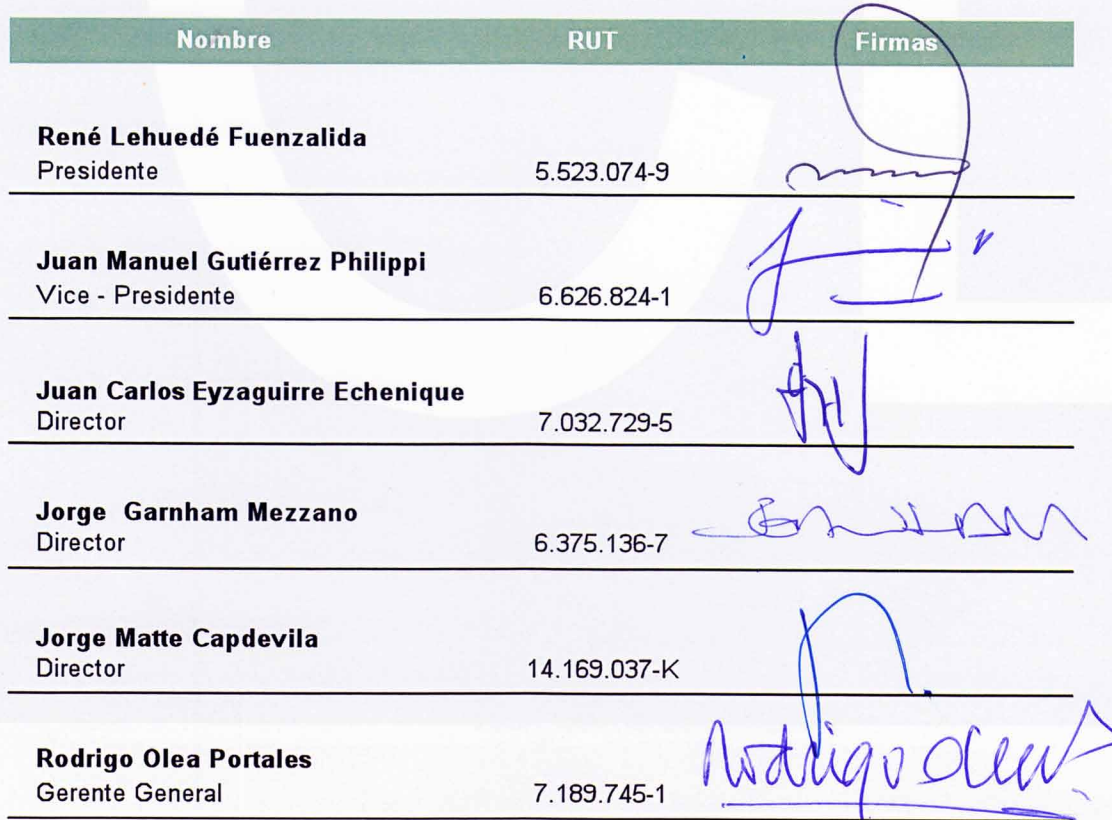 Nombre RUT Firmas
René Lehuedé Fuenzalida
Presidente 5.523.074-9
Juan Manuel Gutiérrez Philippi
Vice - Presidente 6.626.824-1
Juan Carlos Eyzaguirre Echenique
Director 7.032.729-5
Jorge Garnham Mezzano
Director 6.375.136-7
Jorge Matte Capdevila
Director 14.169.037-K
Rodrigo Olea Portales
Rodrigo Olea
Gerente General 7.189.745-1